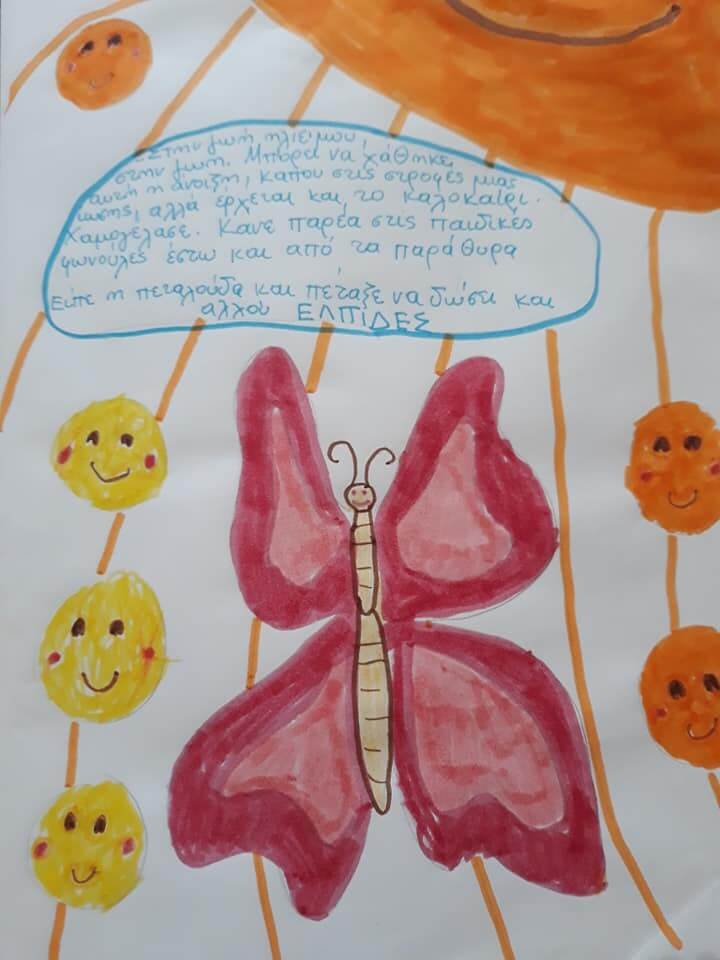 Στην ζωή ήλιε μου,
στην ζωή. Μπορεί να χάθηκε
αυτή η άνοιξη, κάπου στις στροφές μιας
ίωσης, αλλά έρχεται και το καλοκαίρι.
Χαμογέλασε. Κάνε παρέα στις παιδικές
φωνούλες έστω και από τα παράθυρα
Είπε η πεταλούδα και πέταξε να δώσει και
αλλού ΕΛΠΙΔΕΣ